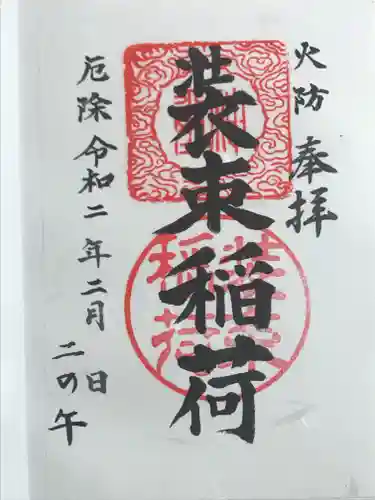 火防 奉拝
装束稲荷
厄除 令和二年二月 日
二の午
装束稲荷